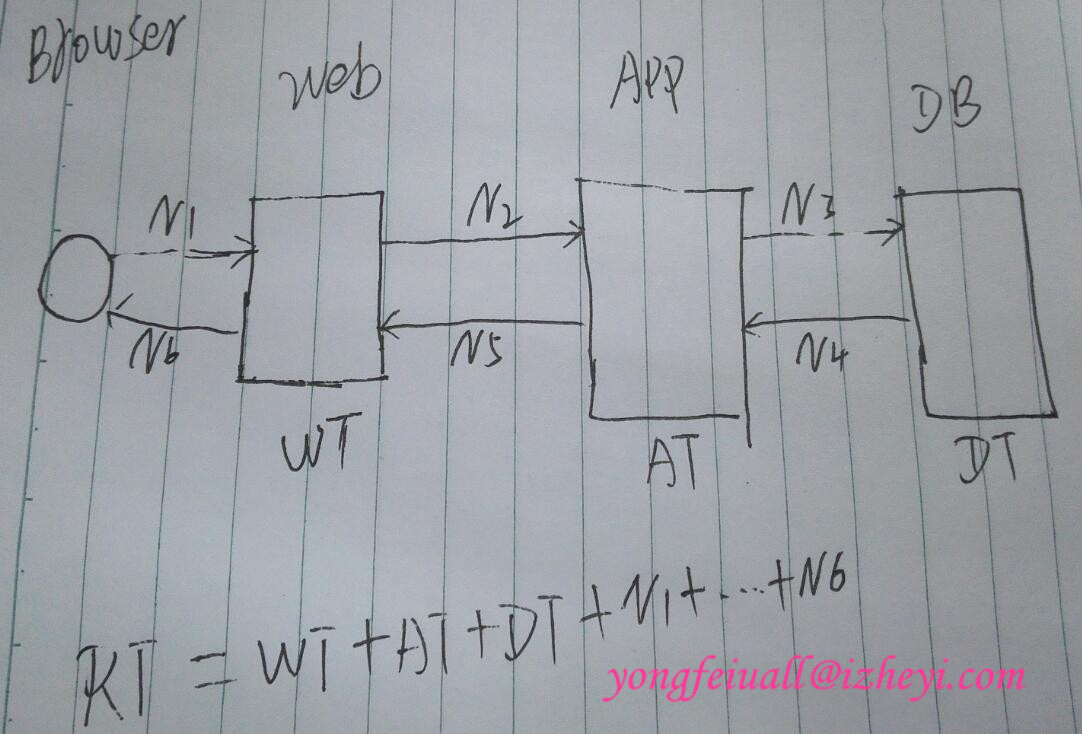 Browser
Web
APP
DB
N1
N2
N3
N6
N5
N4
WT
AT
DT
RT = WT + AT + DT + N1 + ... + N6
yongfeiuall@izheyi.com